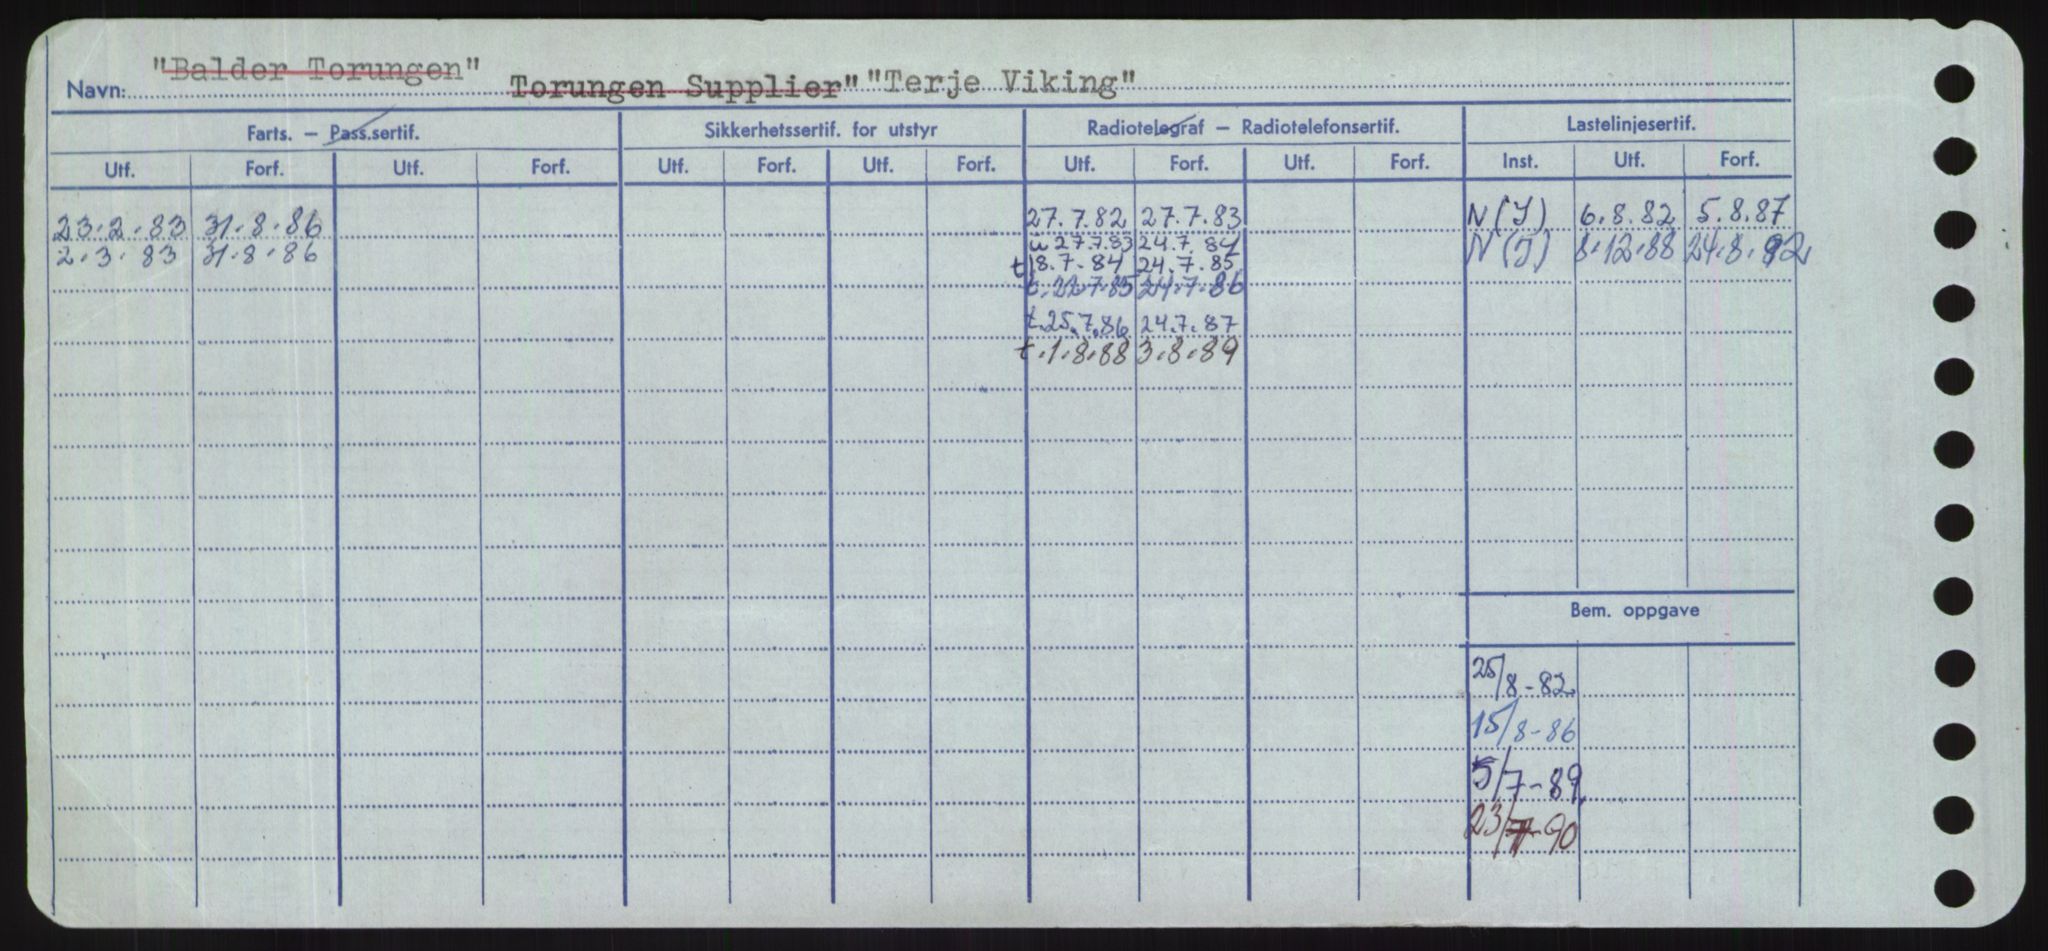 "Balder Torungen"
Navn: Torungen Supplier" "Terje Viking"
Farts. — Pass.sertif. Sikkerhetssertif. for utstyr Radiotelegraf — Radiotelefonsertif. Lastelinjesertif.
Utf. Forf. Utf. Forf. Utf. Forf. Utf. Forf. Utf. Forf. Utf. Forf. Inst. Utf. Forf.
23.2.83 31.8.86 27.7.82 27.7.83 N(J) 6.8.82 5.8.87
2.3.83 31.8.86 u 27.7.83 24.7.84 N(J) 8.12.88 24.8.92
t 18.7.84 24.7.85
t.22.7.85 24.7.86
t.25.7.86 24.7.87
t.1.8.88 3.8.89
Bem. oppgave
25/8-82
15/8-86
5/7-89
23/7-90